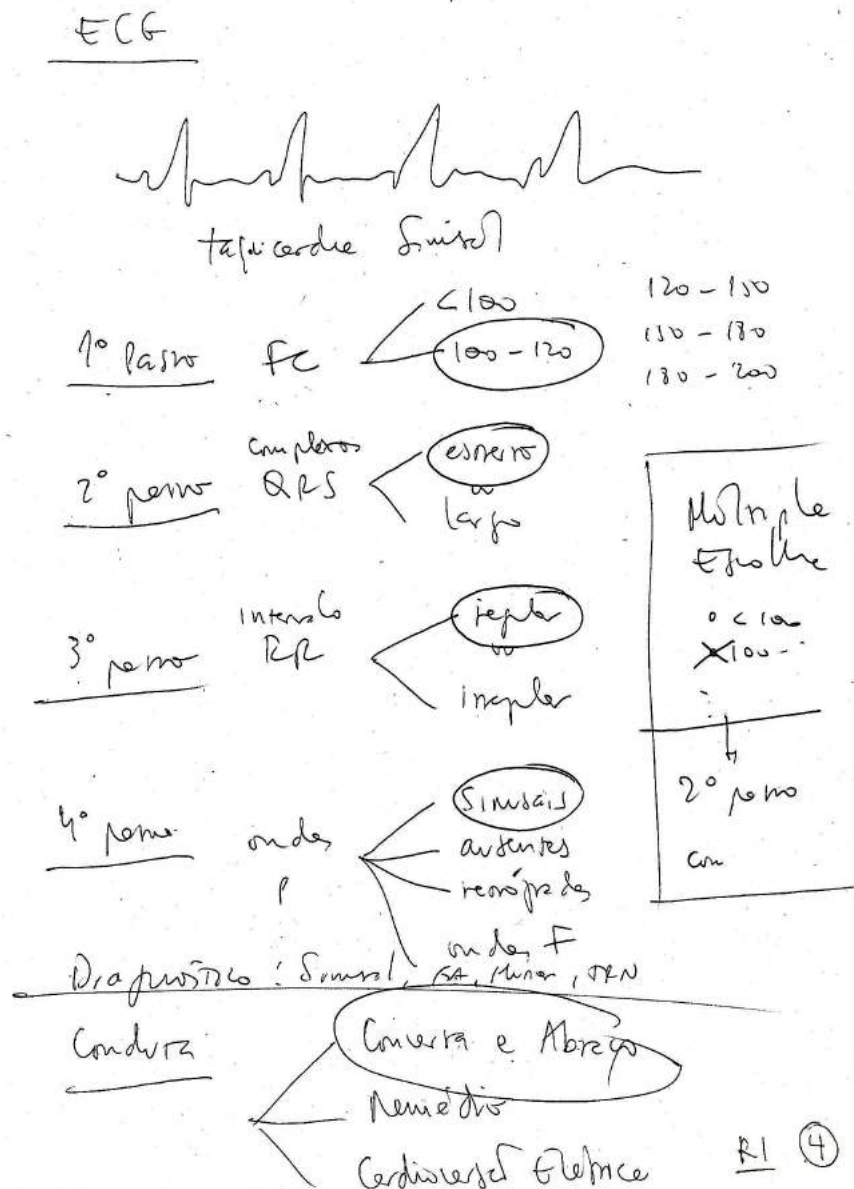 ECG
taquicardia Sinusal
1º Passo FC < 100
100 - 120
120 - 150
150 - 180
180 - 200
2º passo complexos QRS estreito
ou
largo
3º passo intervalo RR regular
ou
irregular
4º passo ondas P Sinusais
ausentes
retrógradas
ondas F
Múltipla
Escolha
< 100
100 -
2º passo
com
Diagnóstico : Sinusal, FA, Flutter,
Conduta Conversa e Abraço
Remédio
Cardioversão Elétrica
R1 4